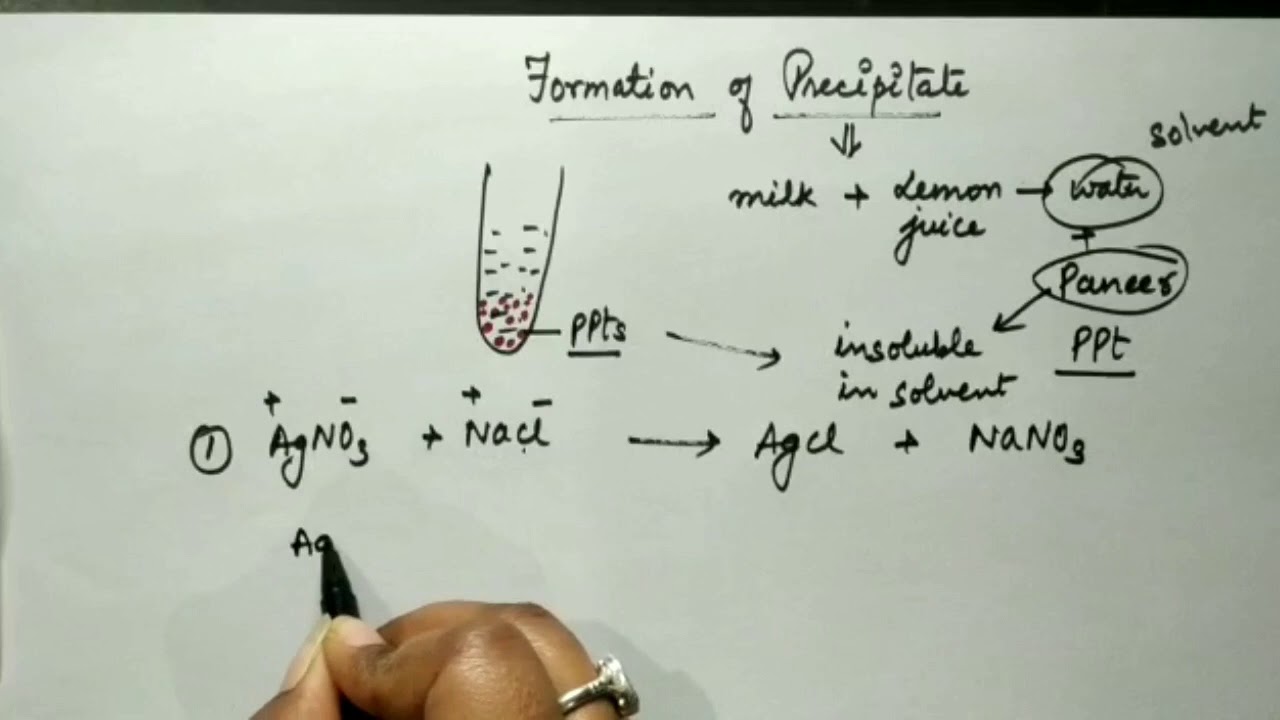 Formation of Precipitate
⇓
solvent
milk + Lemon juice → water
+
Paneer
PPts → insoluble in solvent
PPt
+ - + -
① AgNO3 + NaCl → AgCl + NaNO3
Ag